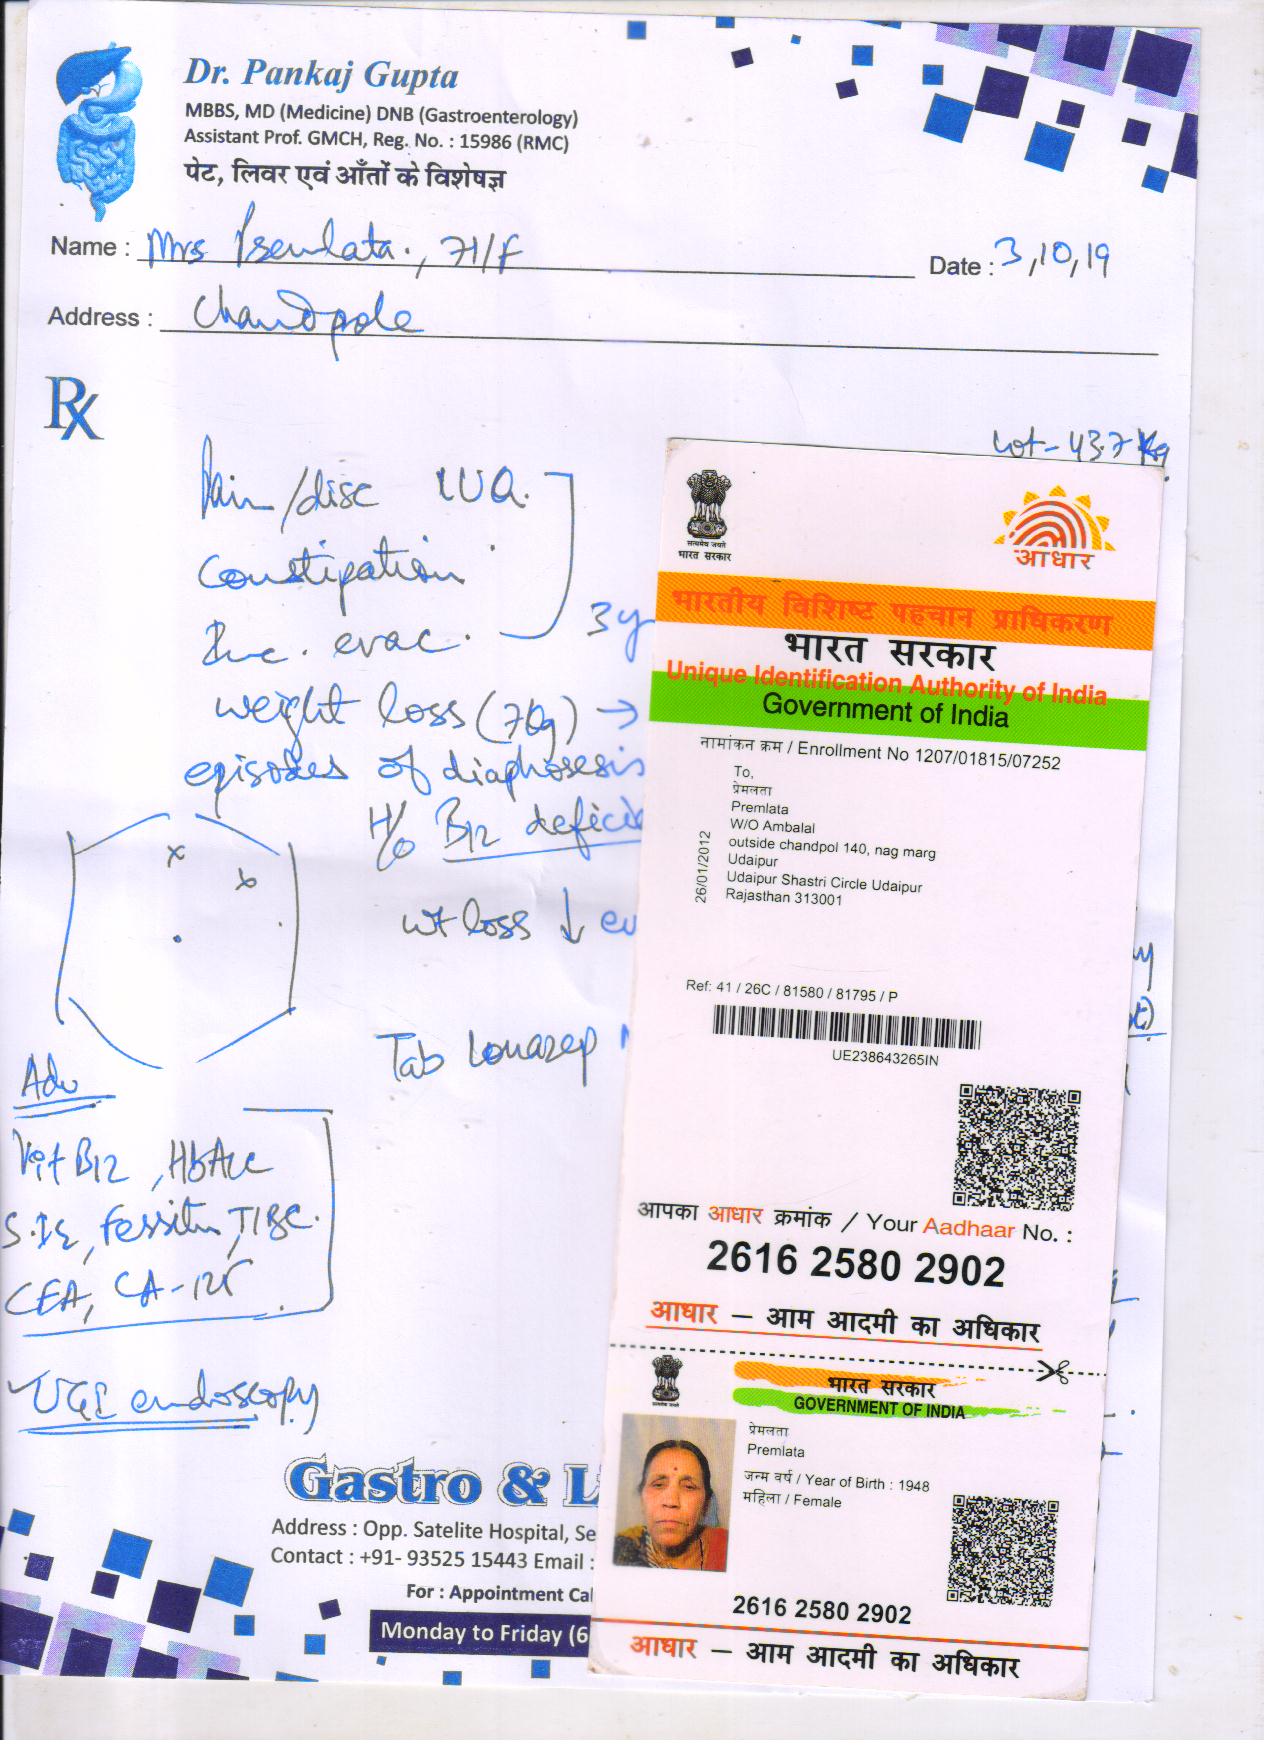 Dr. Pankaj Gupta
MBBS, MD (Medicine) DNB (Gastroenterology)
Assistant Prof. GMCH, Reg. No. : 15986 (RMC)
पेट, लिवर एवं आँतों के विशेषज्ञ
Name : Mrs Premlata., 71/F
Date : 3,10,19
Address : Chandpole
Rx
wt- 43.7 Kg
Pain/disc LUQ.
Constipation
Inc. evac.
3y
weight loss (7Kg) →
episodes of diaphoresis
H/o B12 defici
wt loss ↓ ev
Tab Lonazep
Adv
Vit B12, HbA1c
S.Ie, Ferritin, TIBC.
CEA, CA-125
UGI endoscopy
Gastro & L
Address : Opp. Satelite Hospital, Se
Contact : +91- 93525 15443 Email :
For : Appointment Ca
Monday to Friday (6
सत्यमेव जयते
भारत सरकार
आधार
भारतीय विशिष्ट पहचान प्राधिकरण
भारत सरकार
Unique Identification Authority of India
Government of India
नामांकन क्रम / Enrollment No 1207/01815/07252
26/01/2012
To,
प्रेमलता
Premlata
W/O Ambalal
outside chandpol 140, nag marg
Udaipur
Udaipur Shastri Circle Udaipur
Rajasthan 313001
Ref: 41 / 26C / 81580 / 81795 / P
UE238643265IN
आपका आधार क्रमांक / Your Aadhaar No. :
2616 2580 2902
आधार – आम आदमी का अधिकार
भारत सरकार
GOVERNMENT OF INDIA
प्रेमलता
Premlata
जन्म वर्ष / Year of Birth : 1948
महिला / Female
2616 2580 2902
आधार – आम आदमी का अधिकार